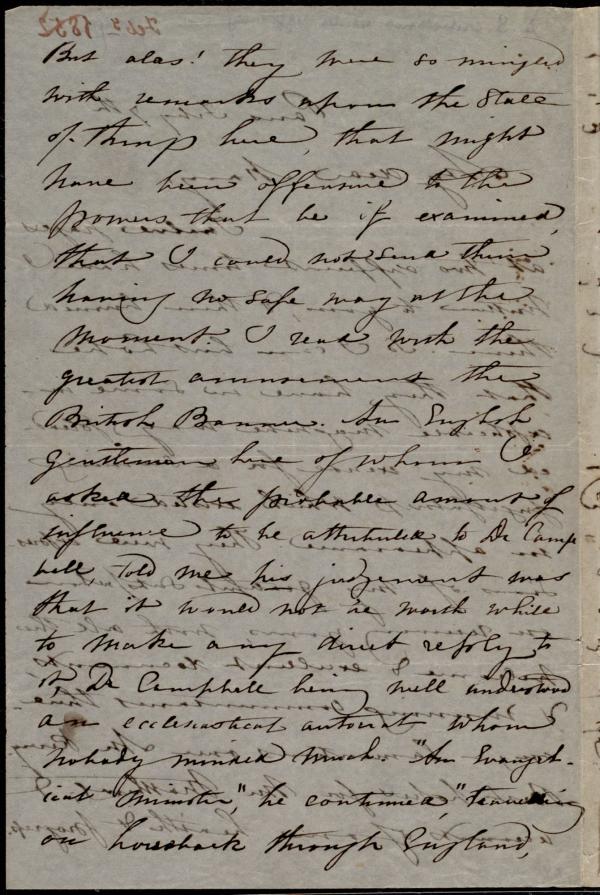 But alas! they were so mingled
with remarks upon the State
of things here, that might
have been offensive to the
powers that be if examined,
that I could not send them
having no safe way at the
moment. I read with the
greatest amusement the
British Banner. An English
gentleman here of whom I
asked the probable amount of
influence to be attributed to Dr Camp
bell, told me his judgement was
that it would not be worth while
to make any direct reply to
it, Dr Campbell being well understood
an ecclesiastical autocrat whom
nobody minded much. "An Evangel-
ical "Minister," he continued, "travelling
on horseback through England,